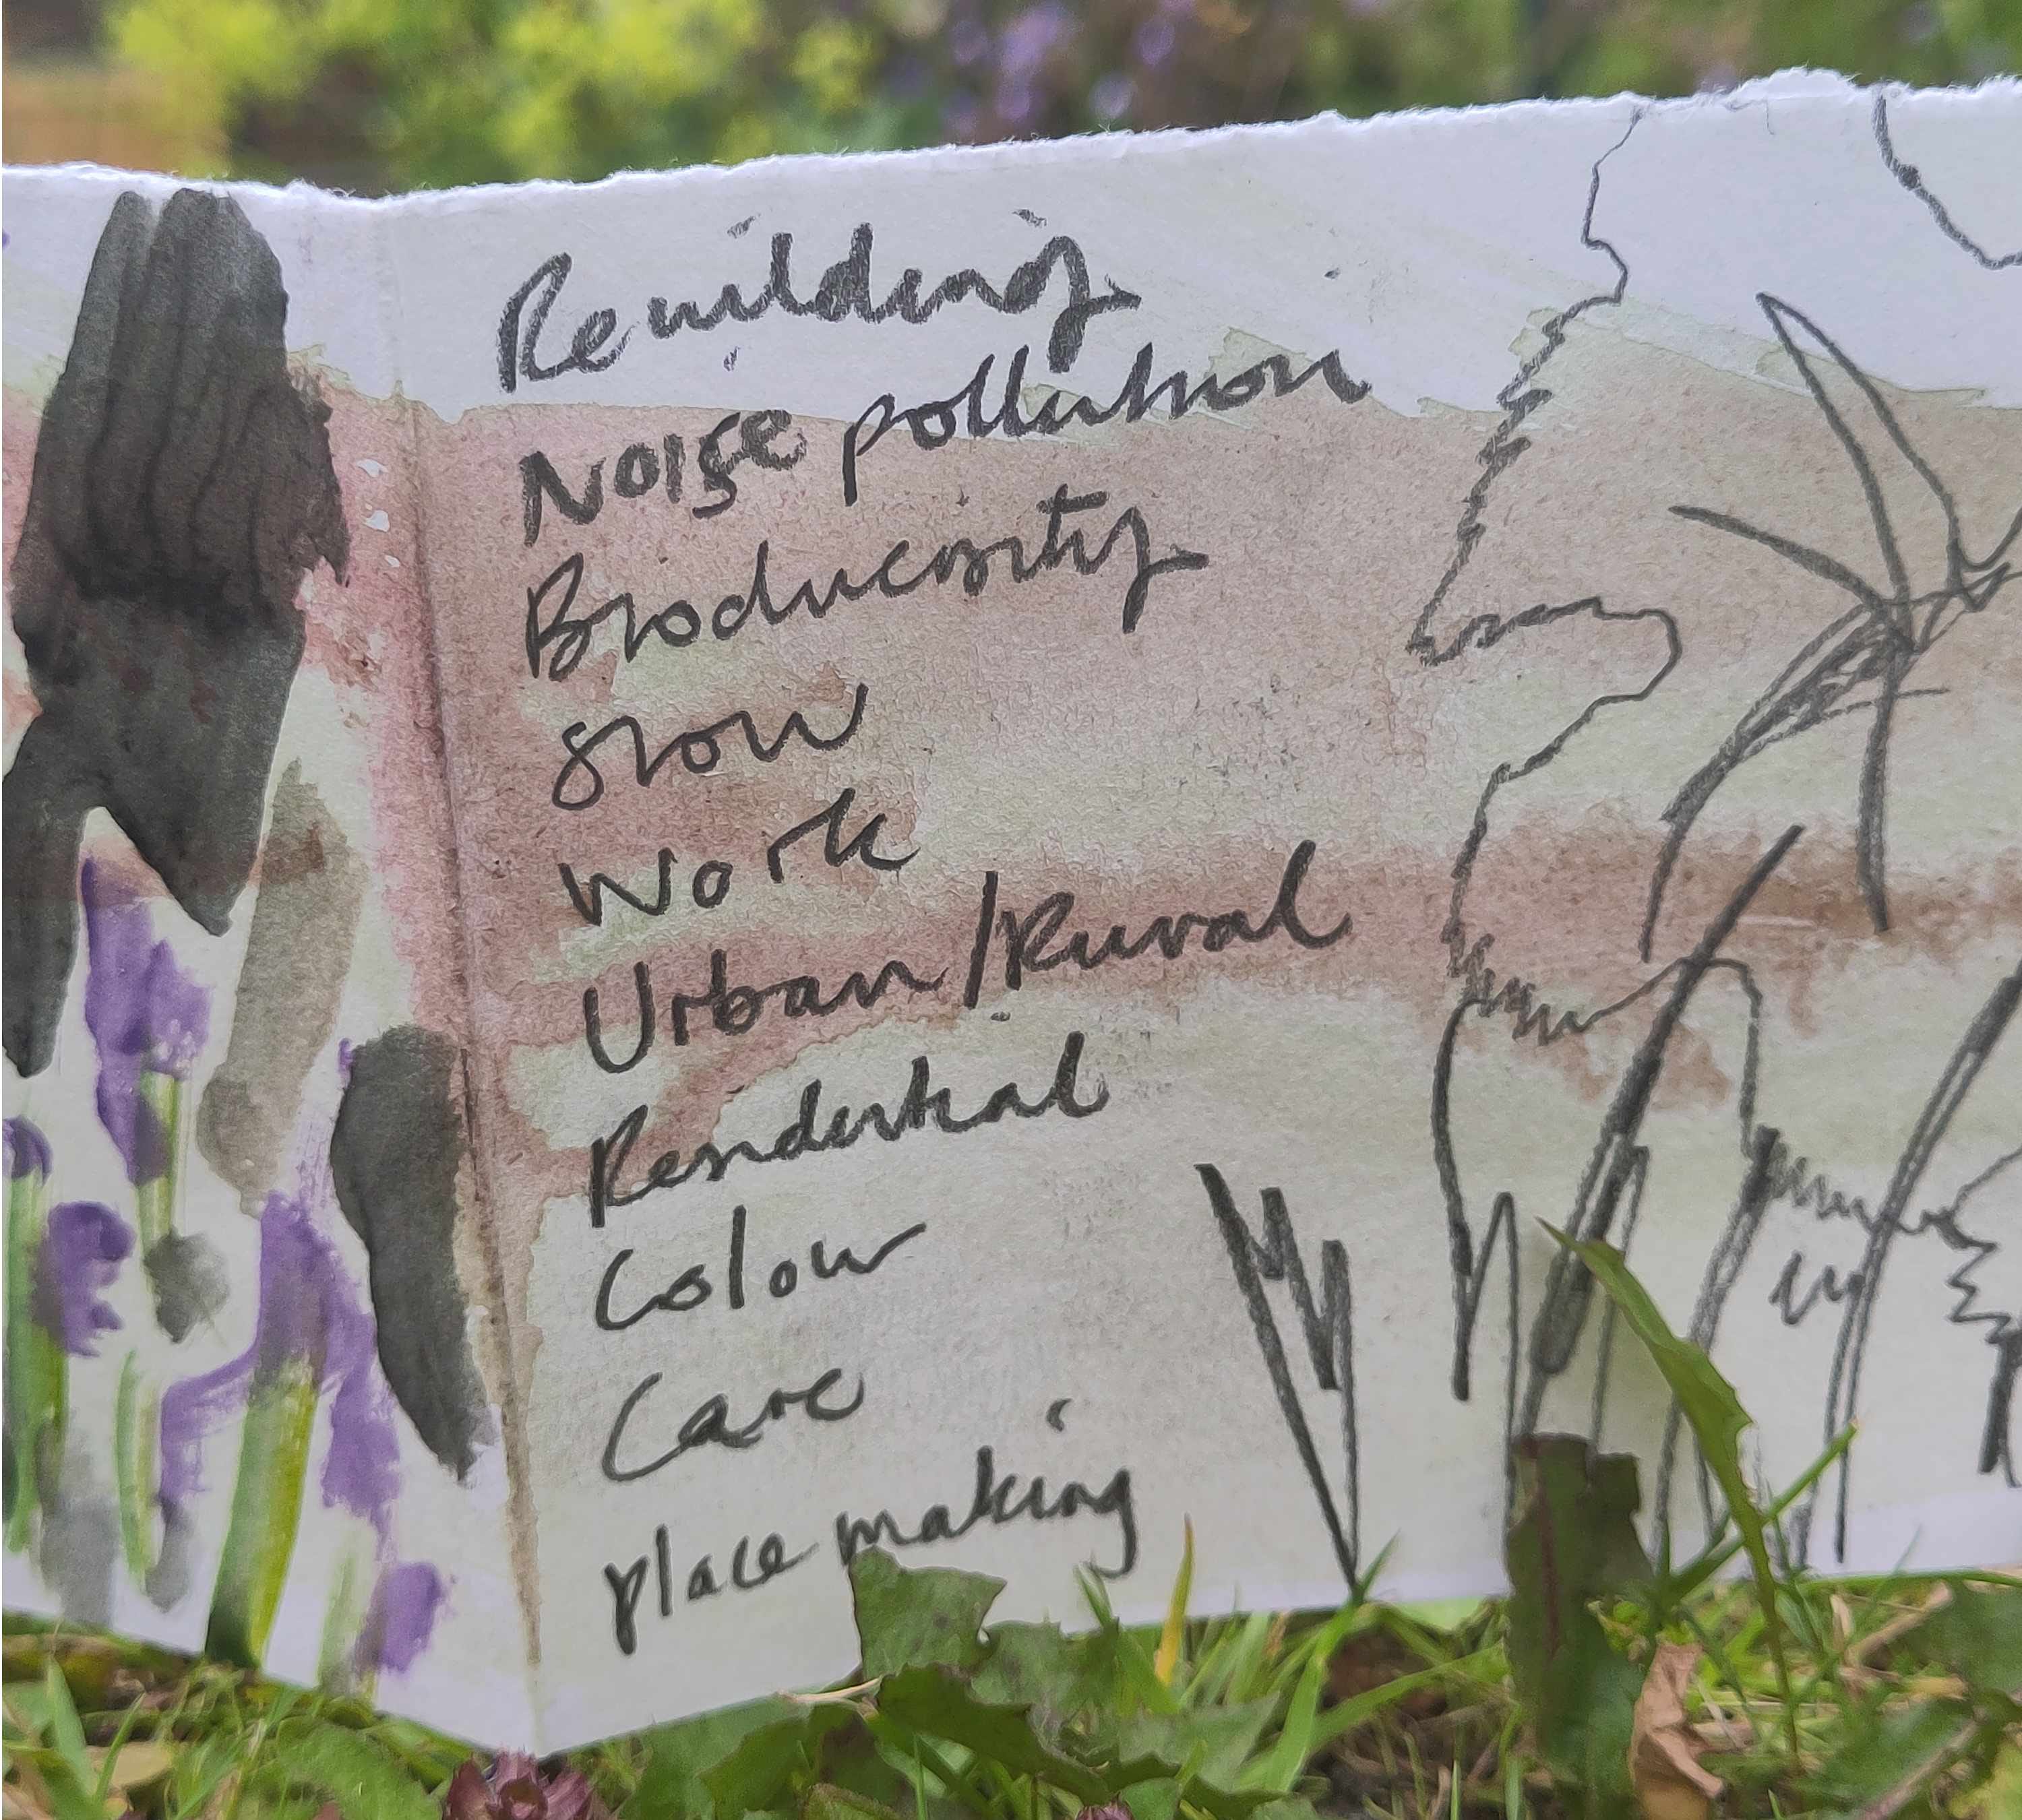 Rewilding
Noise pollution
Biodiversity
grow
Work
Urban/Rural
Residential
Colour
Care
place making